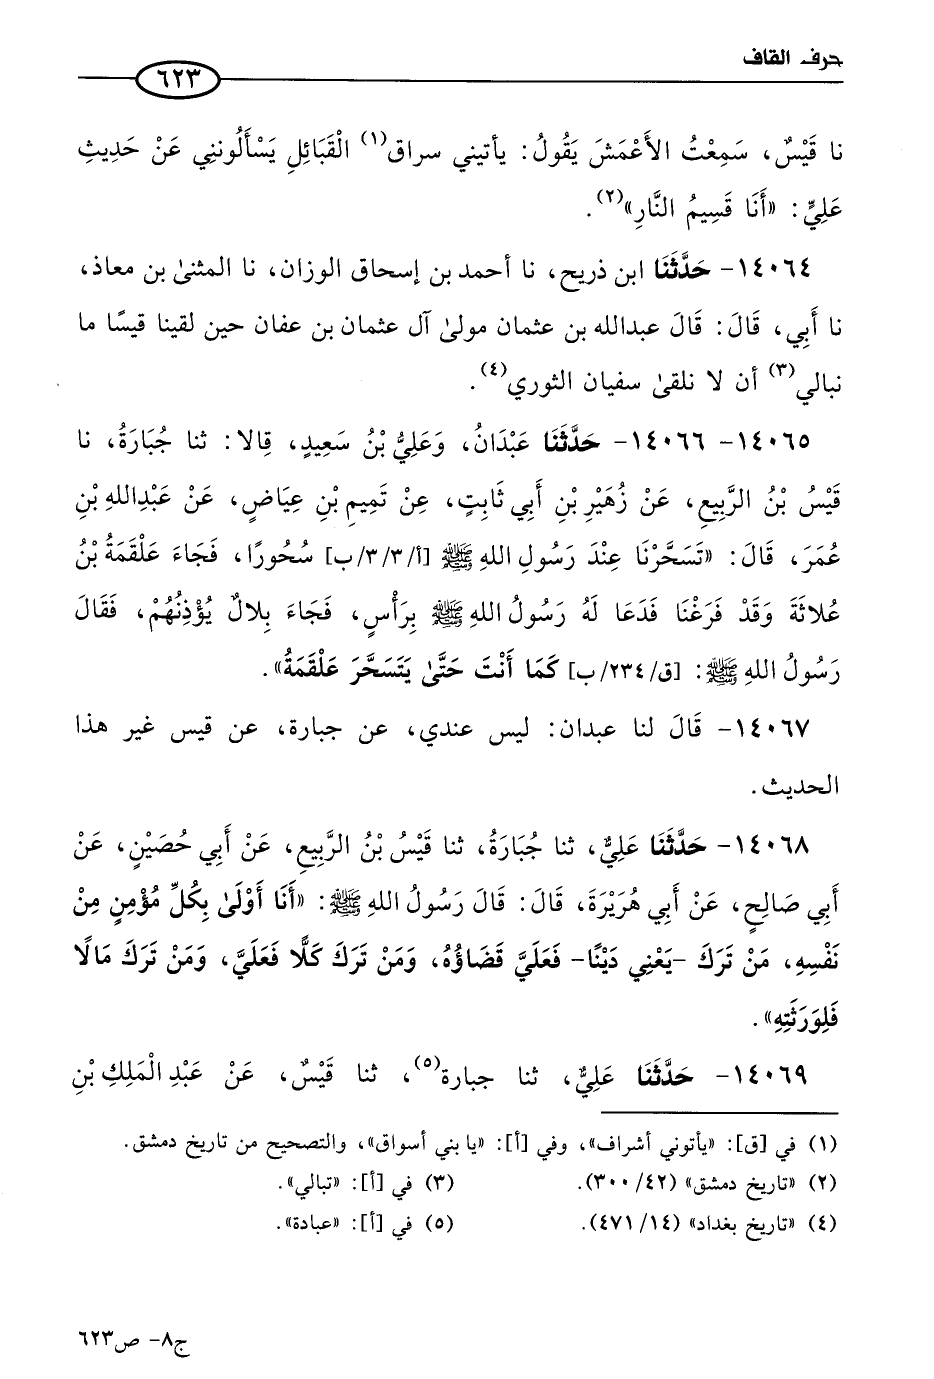 حرف القاف
٦٢٣
نا قَيْسٌ، سَمِعْتُ الأَعْمَشَ يَقُولُ: يأتيني سراق(١) الْقَبَائِلِ يَسْأَلُونَنِي عَنْ حَدِيثِ
عَلِيٍّ: «أَنَا قَسِيمُ النَّارِ»(٢).
١٤٠٦٤- حَدَّثَنَا ابن ذريح، نا أحمد بن إسحاق الوزان، نا المثنى بن معاذ،
نا أَبِي، قَالَ: قَالَ عبدالله بن عثمان مولى آل عثمان بن عفان حين لقينا قيسًا ما
نبالي(٣) أن لا نلقى سفيان الثوري(٤).
١٤٠٦٥- ١٤٠٦٦- حَدَّثَنَا عَبْدَانُ، وَعَلِيُّ بْنُ سَعِيدٍ، قَالا: ثنا جُبَارَةُ، نا
قَيْسُ بْنُ الرَّبِيعِ، عَنْ زُهَيْرِ بْنِ أَبِي ثَابِتٍ، عِنْ تَمِيمِ بْنِ عِيَاضٍ، عَنْ عَبْدِاللهِ بْنِ
عُمَرَ، قَالَ: «تَسَحَّرْنَا عِنْدَ رَسُولِ اللهِ ﷺ [أ/٣/٣/ب] سُحُورًا، فَجَاءَ عَلْقَمَةُ بْنُ
عُلاثَةَ وَقَدْ فَرَغْنَا فَدَعَا لَهُ رَسُولُ اللهِ ﷺ بِرَأْسٍ، فَجَاءَ بِلالٌ يُؤْذِنُهُمْ، فَقَالَ
رَسُولُ اللهِ ﷺ: [ق/٢٣٤/ب] كَمَا أَنْتَ حَتَّى يَتَسَحَّرَ عَلْقَمَةُ».
١٤٠٦٧- قَالَ لنا عبدان: ليس عندي، عن جبارة، عن قيس غير هذا
الحديث.
١٤٠٦٨- حَدَّثَنَا عَلِيٌّ، ثنا جُبَارَةُ، ثنا قَيْسُ بْنُ الرَّبِيعِ، عَنْ أَبِي حُصَيْنٍ، عَنْ
أَبِي صَالِحٍ، عَنْ أَبِي هُرَيْرَةَ، قَالَ: قَالَ رَسُولُ اللهِ ﷺ: «أَنَا أَوْلَى بِكُلِّ مُؤْمِنٍ مِنْ
نَفْسِهِ، مَنْ تَرَكَ -يَعْنِي دَيْنًا- فَعَلَيَّ قَضَاؤُهُ، وَمَنْ تَرَكَ كَلًّا فَعَلَيَّ، وَمَنْ تَرَكَ مَالًا
فَلِوَرَثَتِهِ».
١٤٠٦٩- حَدَّثَنَا عَلِيٌّ، ثنا جبارة(٥)، ثنا قَيْسٌ، عَنْ عَبْدِ الْمَلِكِ بْنِ
(١) في [ق]: «يأتوني أشراف»، وفي [أ]: «يا بني أسواق»، والتصحيح من تاريخ دمشق.
(٢) «تاريخ دمشق» (٤٢/ ٣٠٠). (٣) في [أ]: «تبالي».
(٤) «تاريخ بغداد» (١٤/ ٤٧١). (٥) في [أ]: «عبادة».
ج٨- ص٦٢٣